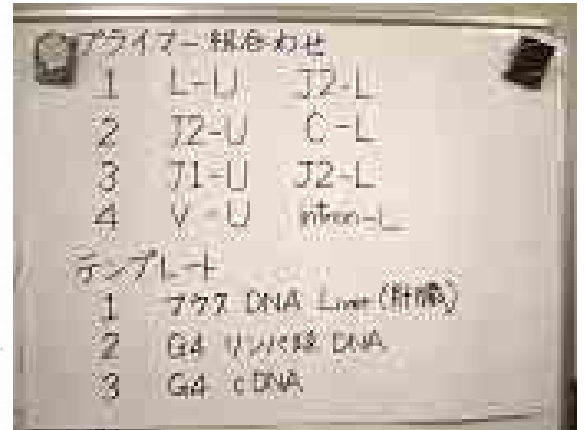 プライマー組合わせ
1 L-U J2-L
2 J2-U C-L
3 J1-U J2-L
4 V-U intron-L
テンプレート
1 DNA (肝臓)
2 G4 リンパ球 DNA
3 G4 cDNA